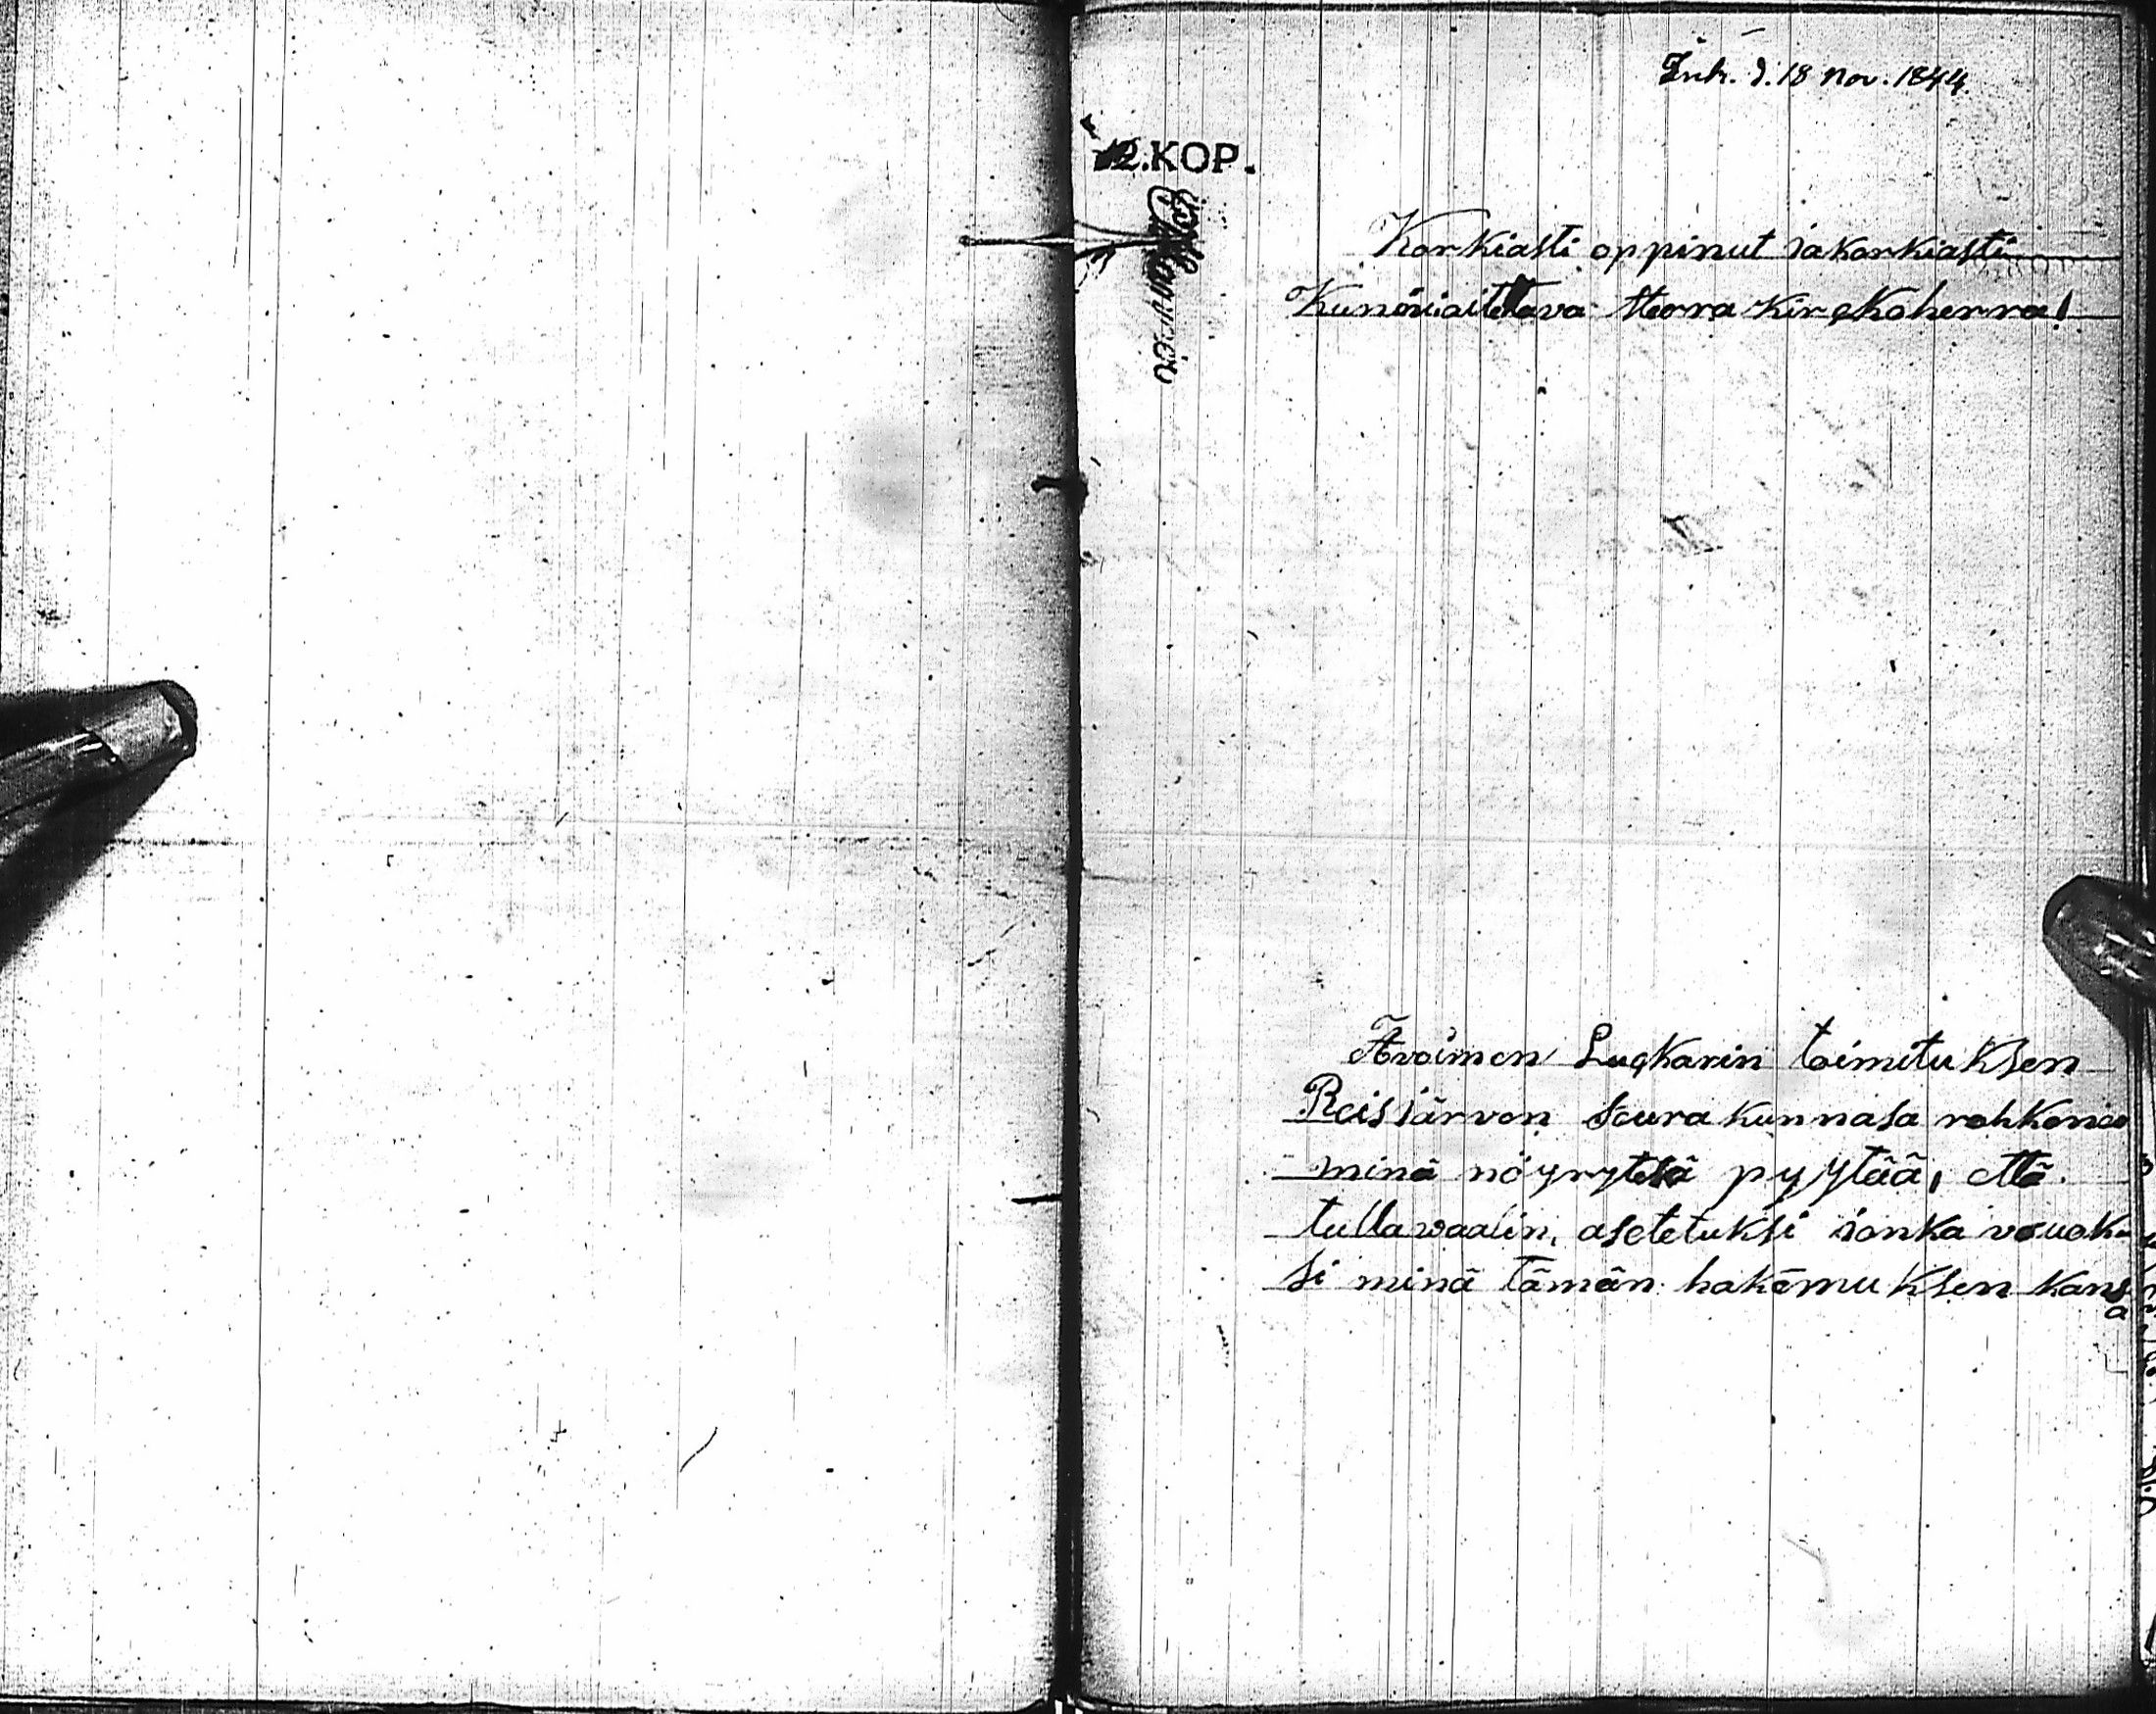 Ink. d. 18 Nov. 1844.
12.KOP.
Korkiasti oppinut ja korkiasti
Kunniaitettava Herra kirckoherra!
Avoimen Luckarin toimituksen
Reisjärven seurakunnasa rohkenen
minä nöyrytesä pyytää, että
tulla waalin, asetetuksi jonka vouok-
si minä tämän hakemuksen kansa